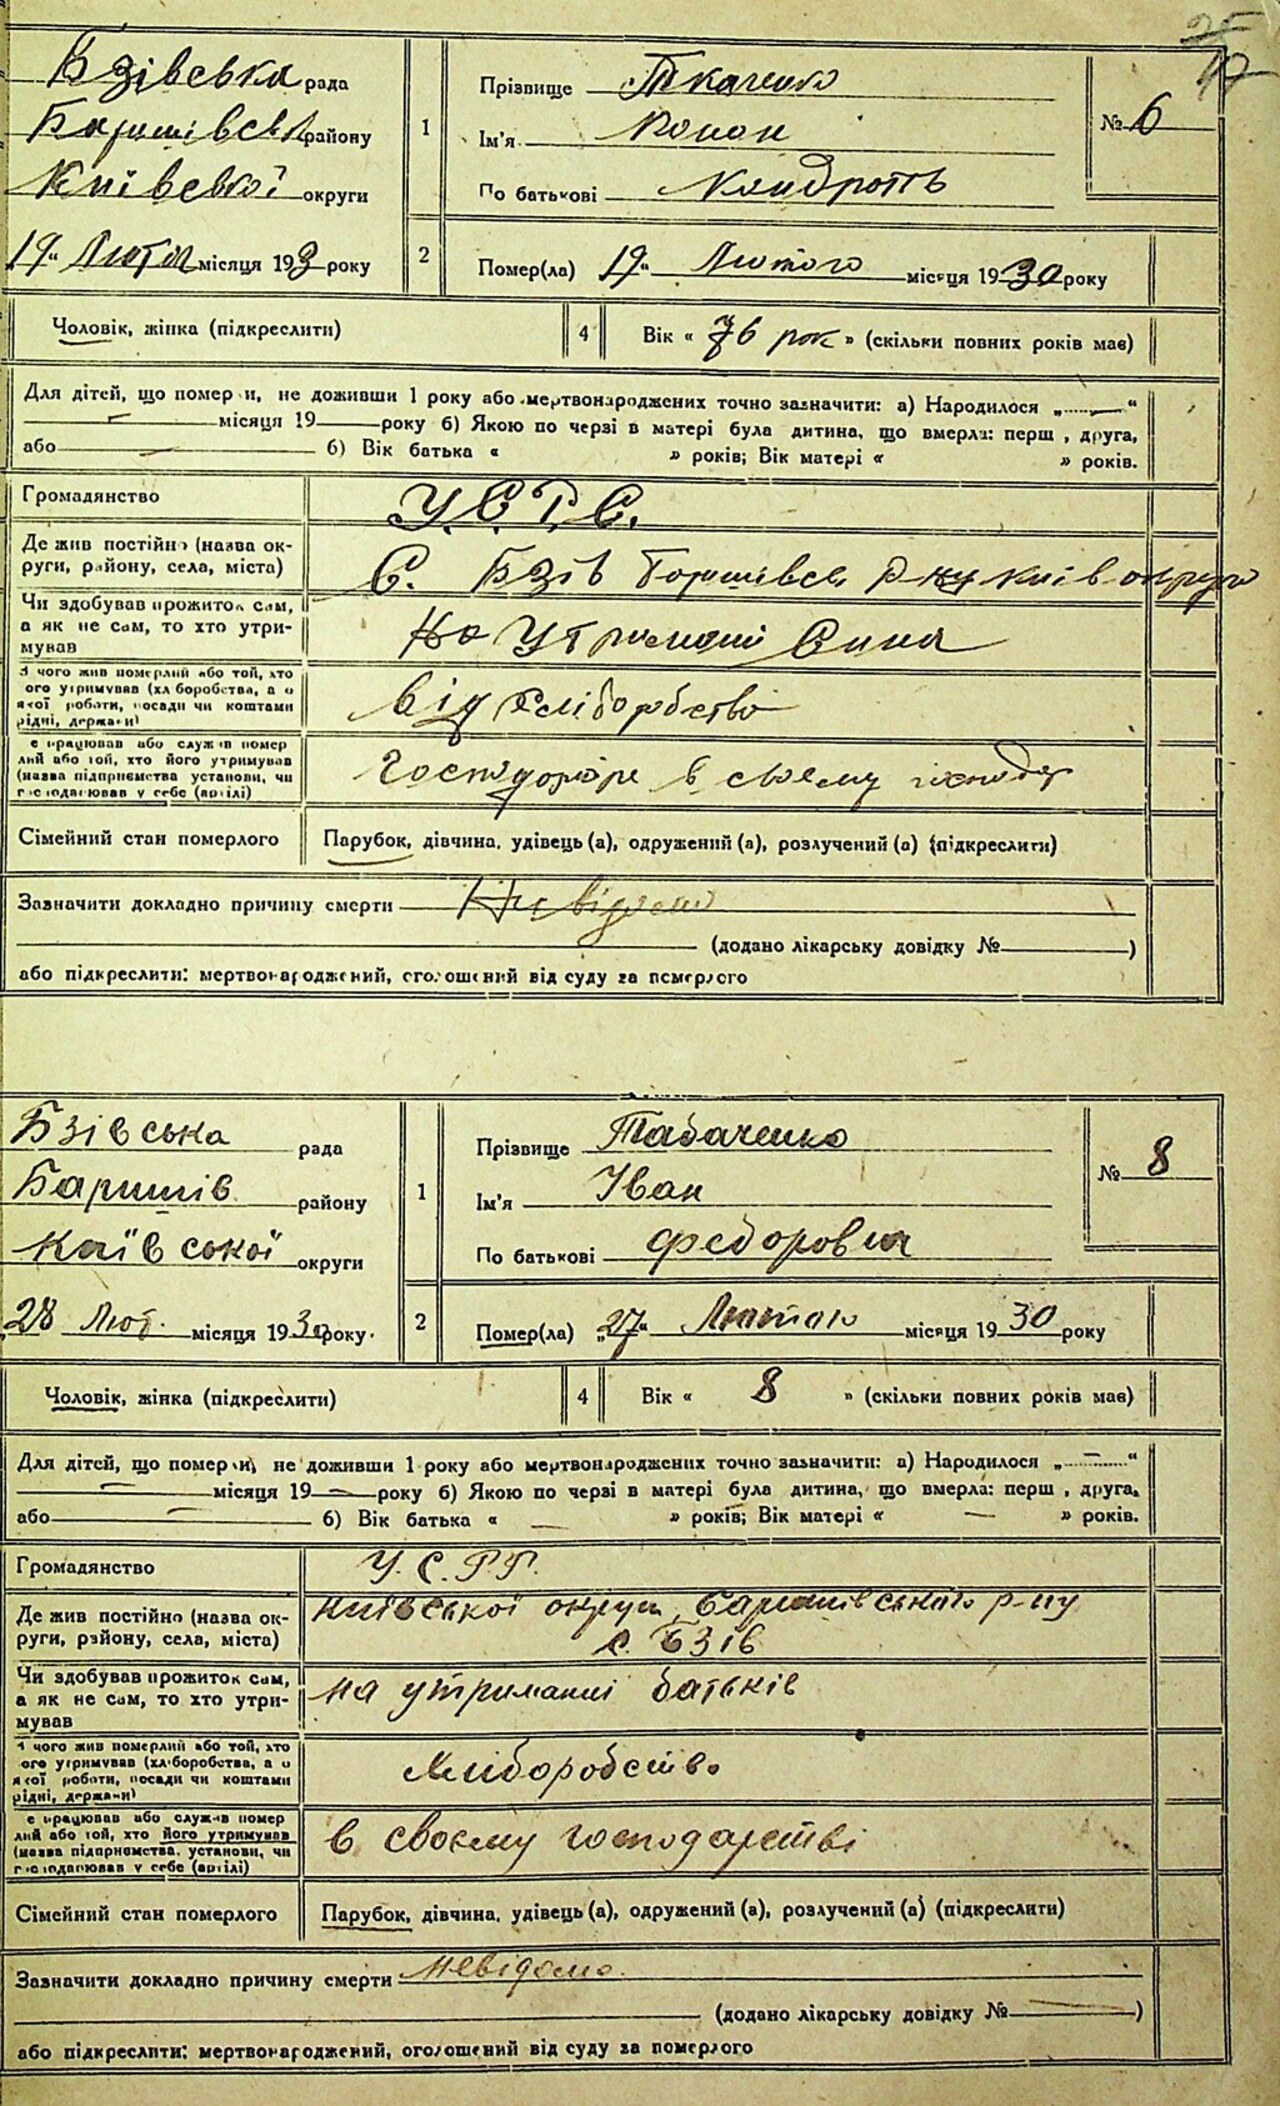 Бзівська рада
Баришівськ району
Київської округи
„19“ Лютого місяця 193 року
1
Прізвище Ткаченко
Ім'я Конон
По батькові Кондратів
№ 6
2
Помер(ла) 19“ Лютого місяця 1930 року
Чоловік, жінка (підкреслити)
4
Вік « 76 рок » (скільки повних років має)
Для дітей, що померли, не доживши 1 року або мертвонароджених точно зазначити: а) Народилося „ “
місяця 19 року б) Якою по черзі в матері була дитина, що вмерла: перш , друга,
або б) Вік батька « » років; Вік матері « » років.
Громадянство
У.С.Р.С.
Де жив постійно (назва ок-
руги, району, села, міста)
С. Бзів Баришівськ р-ну Київ округи
Чи здобував прожиток сам,
а як не сам, то хто утри-
мував
На Утриманні Сина
З чого жив померлий або той, хто
ого утримував (хл боробства, а о
якої роботи, посади чи коштами
рідні, держави)
від Хліборобство
е працював або служив помер
лий або той, хто його утримував
(назва підприємства установи, чи
господарював у себе (артілі)
Господарює в своєму господар
Сімейний стан померлого
Парубок, дівчина, удівець (а), одружений (а), розлучений (а) (підкреслити)
Зазначити докладно причину смерти Невідомо
(додано лікарську довідку № )
або підкреслити: мертвонароджений, оголошений від суду за померлого
Бзівська рада
Баришів району
Київської округи
„28 Лют. місяця 1930 року.
1
Прізвище Табаченко
Ім'я Іван
По батькові Федорович
№ 8
2
Помер(ла) „27“ Лютого місяця 1930 року
Чоловік, жінка (підкреслити)
4
Вік « 8 » (скільки повних років має)
Для дітей, що померли, не доживши 1 року або мертвонароджених точно зазначити: а) Народилося „ “
місяця 19 року б) Якою по черзі в матері була дитина, що вмерла: перш , друга,
або б) Вік батька « » років; Вік матері « » років.
Громадянство
У.С.Р.Р.
Де жив постійно (назва ок-
руги, району, села, міста)
Київської округи, Баришівського р-ну
с. Бзів
Чи здобував прожиток сам,
а як не сам, то хто утри-
мував
на утриманні батьків
чого жив померлий або той, хто
ого утримував (хліборобства, а о
якої роботи, посади чи коштами
рідні, держави)
Хліборобство
е працював або служив помер
лий або той, хто його утримував
(назва підприємства, установи, чи
господарював у себе (артілі)
в своєму господарстві
Сімейний стан померлого
Парубок, дівчина, удівець (а), одружений (а), розлучений (а) (підкреслити)
Зазначити докладно причину смерти невідомо.
(додано лікарську довідку № )
або підкреслити: мертвонароджений, оголошений від суду за померлого